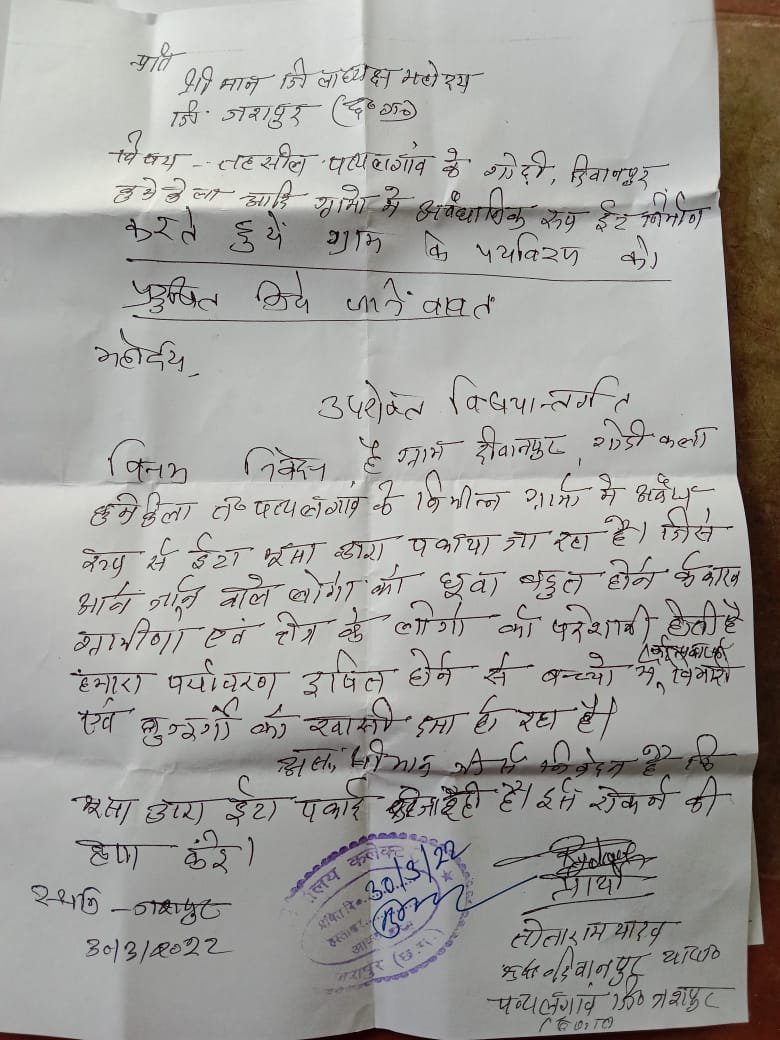 प्रति
श्री मान जिलाध्यक्ष महोदय
जि. जशपुर (छ०ग०)
विषय - तहसील पत्थलगांव के गोढ़ी, दिवानपुर
आदि ग्रामो मे अवैधानिक रूप ईट निर्माण
करते हुये ग्राम के पर्यावरण को
प्रदुषित किये जाने बाबत
महोदय,
उपरोक्त विषयान्तर्गत
विनम्र निवेदन है ग्राम दीवानपुर, गोढी कला
त० पत्थलगांव के विभीन्न ग्रामो मे अवैध
रूप से ईटा भूसा द्वारा पकाया जा रहा है। जिसे
आने जाने वाले लोगो को धूवा बहुत होने के कारण
ग्रामीणो एवं क्षेत्र के लोगो को परेशानी होती है
हमारा पर्यावरण दुषित होने से बच्चो मे विमारी
एवं बुजुर्गो को खासी दमा हो रहा है।
अतः श्रीमान जी से निवेदन है कि
भूसा द्वारा ईटा पकाई जा रही है। इसे रोकने की
कृपा करें।
स्थान - जशपुर
30/3/2022
कार्यालय कलेक्टर
30/3/22
जशपुर (छ.ग.)
प्रार्थी
सीताराम यादव
दिवानपुर थाना
पत्थलगांव जि० जशपुर
(छ०ग०)